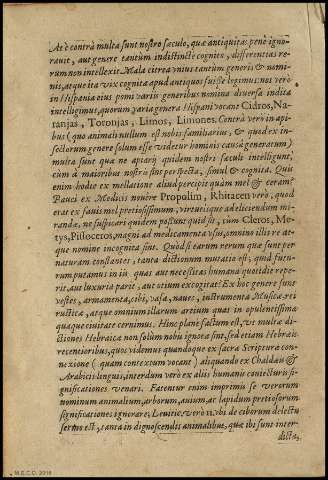 At è contrà multa sunt nostro sæculo, quæ antiquitas penè igno-
rauit, aut genere tantùm indistinctè cognita, differentias re-
rum non intellexit. Mala citrea vnius tantùm generis & nomi-
nis, atque ita vix cognita apud antiquos fuisse legimus: nos verò
in Hispania eius pomi varijs generibus nomina diuersa indita
intelligimus, quorum varia genera Hispani vocant Cidros, Na-
ranjas, Toronjas, Limos, Limones. Contrà verò in api-
bus (quo animali nullum est nobis familiarius, & quod ex in-
sectorum genere solum esse videtur hominis causa generatum)
multa sunt quæ ne apiarij quidem nostri sæculi intelligunt,
cùm à maioribus nostris sint perspecta, simul & cognita. Quis
enim hodie ex mellatione aliud percipit quàm mel & ceram?
Pauci ex Medicis nouere Propolim, Rhitacen verò, quod
erat ex fauis mel pretiosissimum, virtutisque ad eliciendum mi-
randæ, ne suspicari quidem possunt quid sit, cùm Cleros, Me-
tys, Pissoceros, magni ad medicamenta vsus, omnino illi re at-
que nomine incognita sint. Quòd si earum rerum quæ sunt per
naturam constantes, tanta dictionum mutatio est, quid futu-
rum putamus in iis quas aut necessitas humana quotidie repe-
rit, aut luxuria parit, aut otium excogitat? Ex hoc genere sunt
vestes, armamenta, cibi, vasa, naues, instrumenta Musica, rei
rusticæ, atque omnium illarum artium quas in opulentissima
quaque ciuitate cernimus. Hinc planè factum est, vt multæ di-
ctiones Hebraicæ non solùm nobis ignotæ sint, sed etiam Hebræis
recentioribus, quos videmus quandoque ex sacræ Scripturæ con-
nexione (quam contextum vocant) aliquando ex Chaldæis &
Arabicis linguis, interdum verò ex aliis humanis coniecturis si-
gnificationes venari. Fatentur enim imprimis se verorum
nominum animalium, arborum, auium, ac lapidum pretiosorum
significationes ignorare, Leuitic. verò 11. vbi de ciborum delectu
sermo est, tanta in dignoscendis animalibus, quæ ibi sunt inter-
dicta,
M.E.C.D. 2016